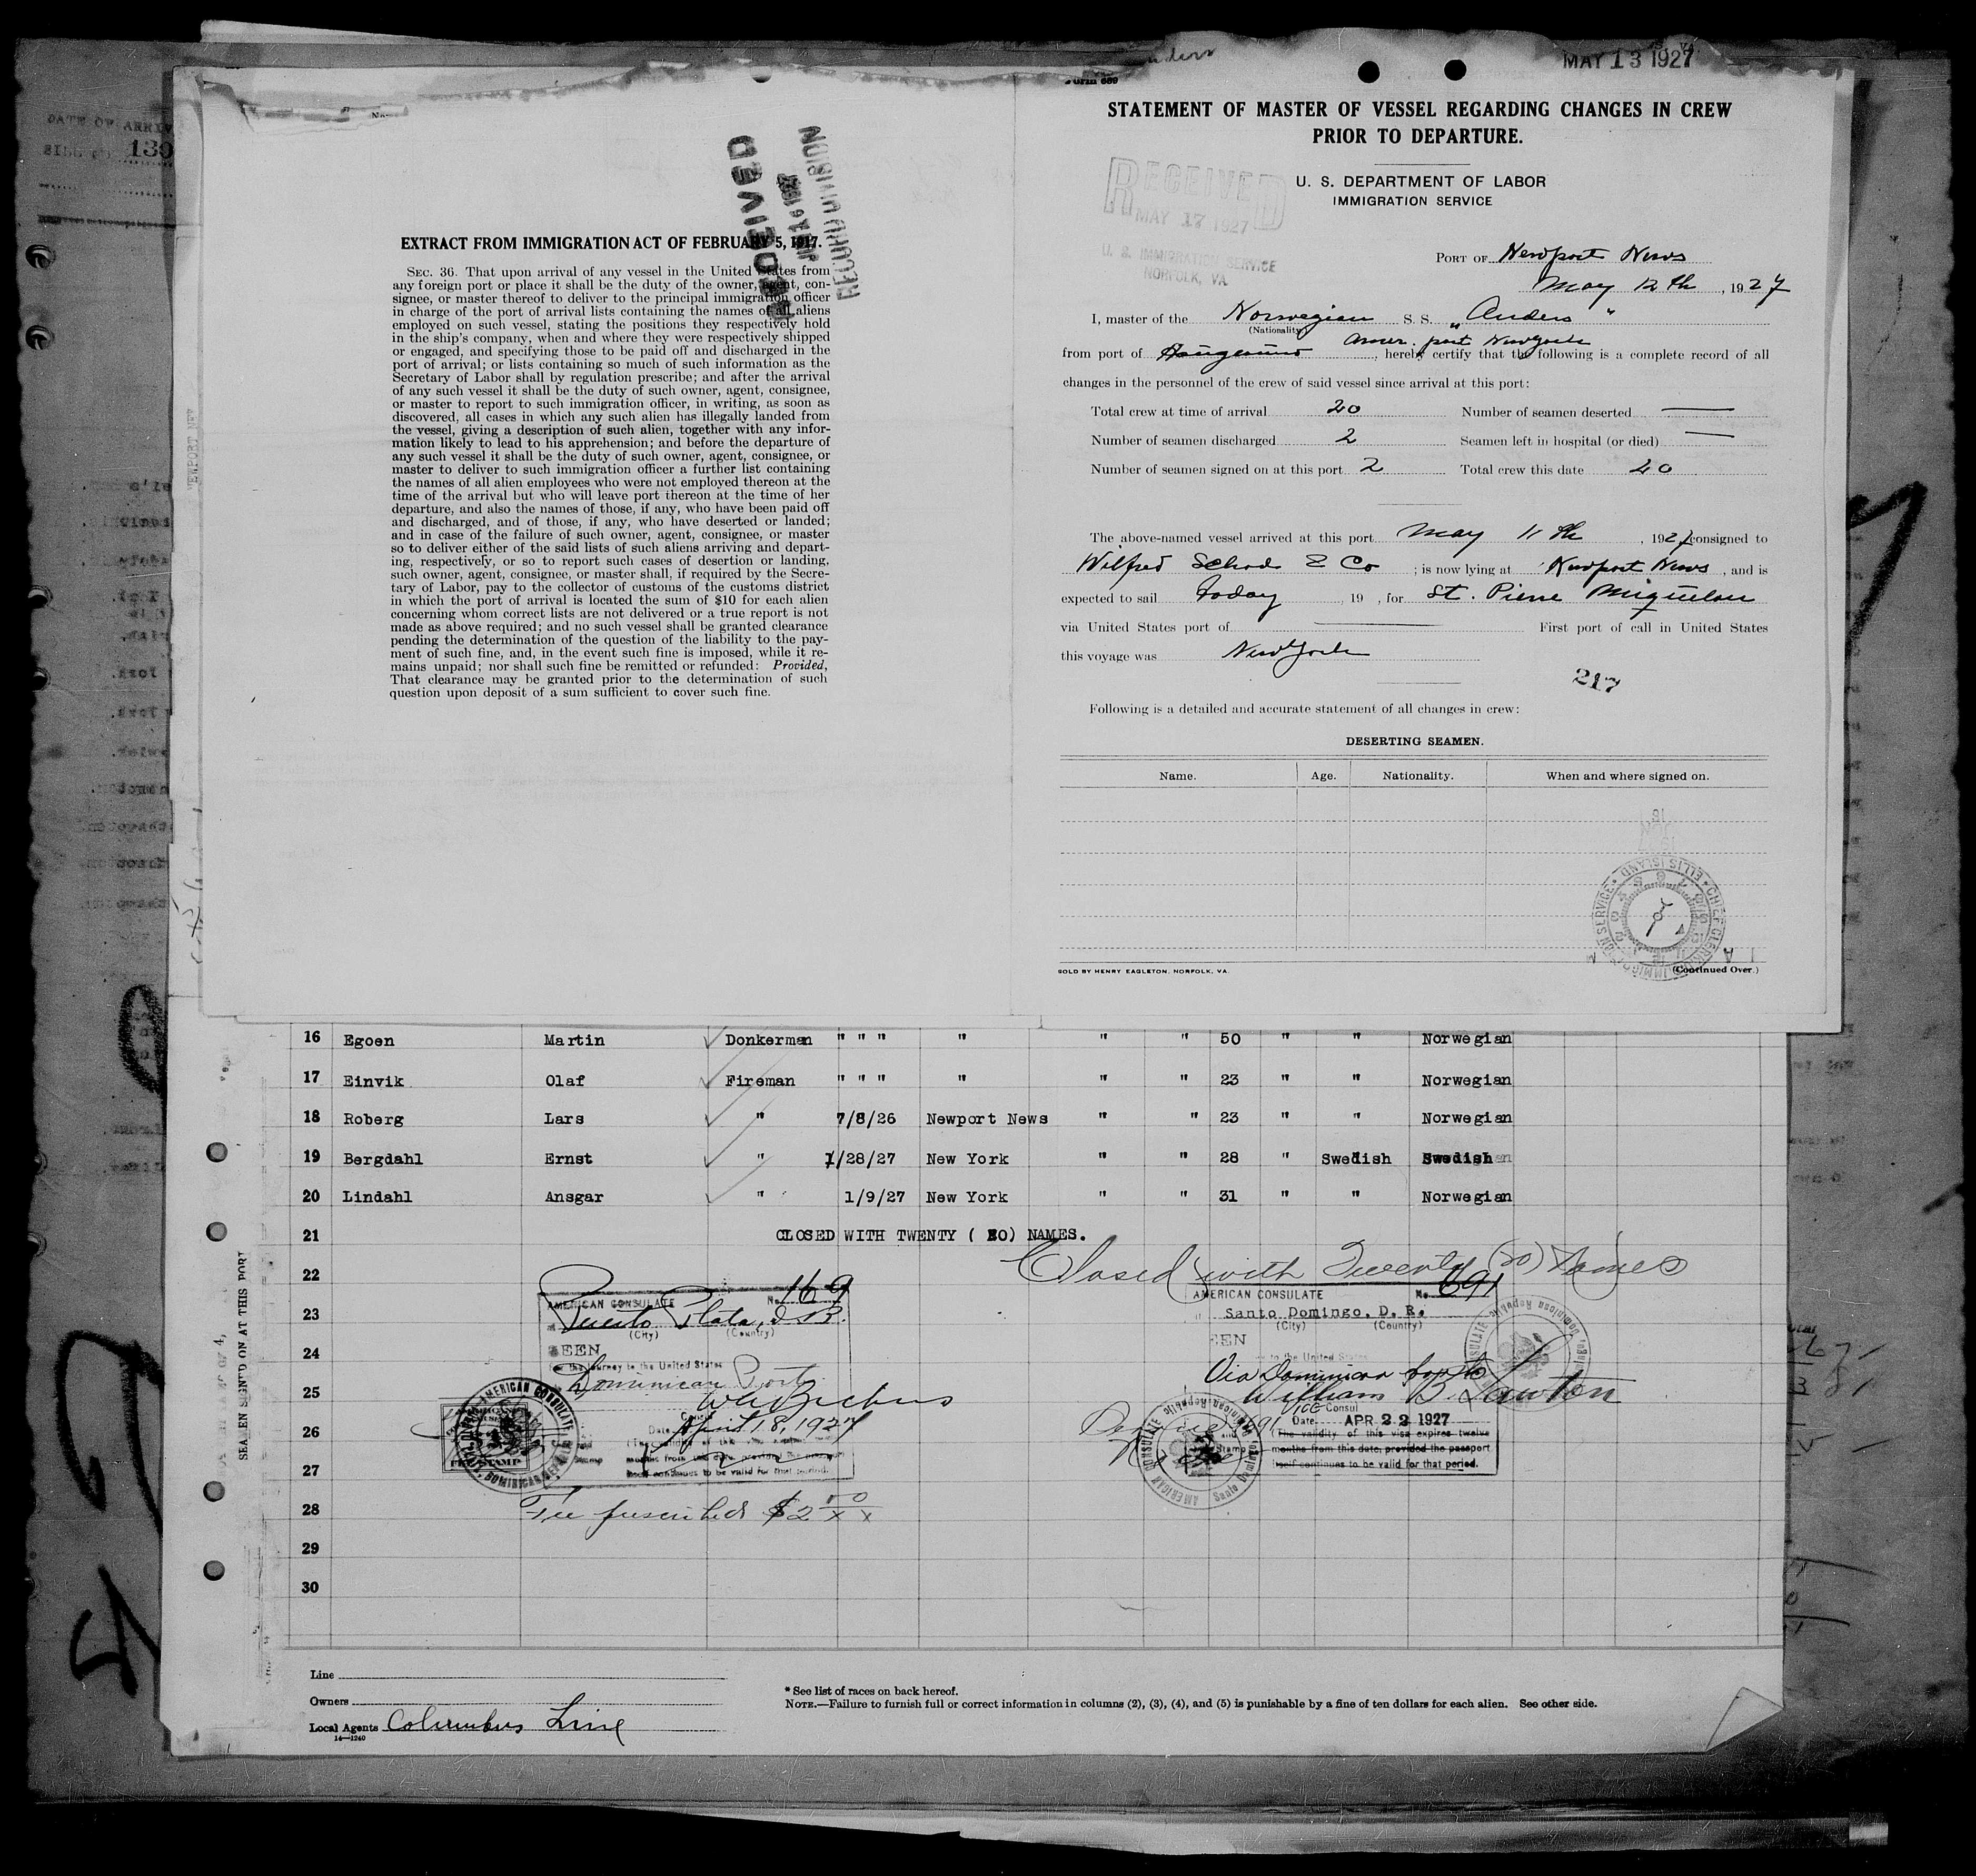 MAY 13 1927
DATE OF ARRIV
130
Form 689
STATEMENT OF MASTER OF VESSEL REGARDING CHANGES IN CREW
PRIOR TO DEPARTURE.
U. S. DEPARTMENT OF LABOR
IMMIGRATION SERVICE
RECEIVED
MAY 17 1927
U. S. IMMIGRATION SERVICE
NORFOLK, VA.
PORT OF Newport News
May 12th, 1927
I, master of the Norwegian S. S. "Anders"
(Nationality)
Amer. port New York
from port of , hereby certify that the following is a complete record of all
changes in the personnel of the crew of said vessel since arrival at this port:
Total crew at time of arrival 20 Number of seamen deserted —
Number of seamen discharged 2 Seamen left in hospital (or died) —
Number of seamen signed on at this port 2 Total crew this date 20
The above-named vessel arrived at this port May 11th, 1927 consigned to
Wilfred Schod & Co ; is now lying at Newport News, and is
expected to sail today, 19 , for St. Pierre Miquelon
via United States port of — First port of call in United States
this voyage was New York
217
Following is a detailed and accurate statement of all changes in crew:
DESERTING SEAMEN.
Name. Age. Nationality. When and where signed on.
SOLD BY HENRY EAGLETON, NORFOLK, VA.
(Continued Over.)
RECEIVED
RECORD DIVISION
EXTRACT FROM IMMIGRATION ACT OF FEBRUARY 5, 1917.
SEC. 36. That upon arrival of any vessel in the United States from
any foreign port or place it shall be the duty of the owner, agent, con-
signee, or master thereof to deliver to the principal immigration officer
in charge of the port of arrival lists containing the names of all aliens
employed on such vessel, stating the positions they respectively hold
in the ship's company, when and where they were respectively shipped
or engaged, and specifying those to be paid off and discharged in the
port of arrival; or lists containing so much of such information as the
Secretary of Labor shall by regulation prescribe; and after the arrival
of any such vessel it shall be the duty of such owner, agent, consignee,
or master to report to such immigration officer, in writing, as soon as
discovered, all cases in which any such alien has illegally landed from
the vessel, giving a description of such alien, together with any infor-
mation likely to lead to his apprehension; and before the departure of
any such vessel it shall be the duty of such owner, agent, consignee, or
master to deliver to such immigration officer a further list containing
the names of all alien employees who were not employed thereon at the
time of the arrival but who will leave port thereon at the time of her
departure, and also the names of those, if any, who have been paid off
and discharged, and of those, if any, who have deserted or landed;
and in case of the failure of such owner, agent, consignee, or master
so to deliver either of the said lists of such aliens arriving and depart-
ing, respectively, or so to report such cases of desertion or landing,
such owner, agent, consignee, or master shall, if required by the Secre-
tary of Labor, pay to the collector of customs of the customs district
in which the port of arrival is located the sum of $10 for each alien
concerning whom correct lists are not delivered or a true report is not
made as above required; and no such vessel shall be granted clearance
pending the determination of the question of the liability to the pay-
ment of such fine, and, in the event such fine is imposed, while it re-
mains unpaid; nor shall such fine be remitted or refunded: Provided,
That clearance may be granted prior to the determination of such
question upon deposit of a sum sufficient to cover such fine.
16 Egoen Martin Donkerman " " " " " " 50 " " Norwegian
17 Einvik Olaf Fireman " " " " " " 23 " " Norwegian
18 Roberg Lars " 7/8/26 Newport News " " 23 " " Norwegian
19 Bergdahl Ernst " 1/28/27 New York " " 28 " Swedish Swedish
20 Lindahl Ansgar " 1/9/27 New York " " 31 " " Norwegian
21 CLOSED WITH TWENTY (20) NAMES.
22 Closed with Twenty (20) Names
23
24
25
26
27
28
29
30
SEAMEN SIGNED ON AT THIS PORT
AMERICAN CONSULATE No. 169
Puerto Plata, D.R.
(City) (Country)
SEEN
For the journey to the United States
Dominican Ports
Date April 18, 1927
FEE STAMP
Fee prescribed $2.50
AMERICAN CONSULATE No. 691
Santo Domingo, D. R.
(City) (Country)
SEEN
to the United States
Via Dominican ports
William B. Lawton
Vice Consul
Date APR 22 1927
The validity of this visa expires twelve
months from this date, provided the passport
itself continues to be valid for that period.
Line
Owners
Local Agents Columbus Line
14—1240
* See list of races on back hereof.
NOTE.—Failure to furnish full or correct information in columns (2), (3), (4), and (5) is punishable by a fine of ten dollars for each alien. See other side.